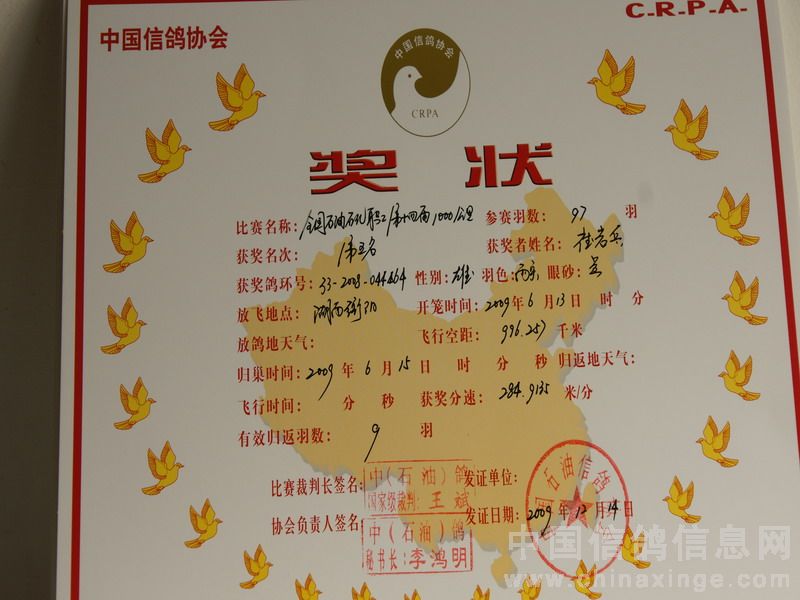 C-R-P-A-
中国信鸽协会
中国信鸽协会
CRPA
奖 状
比赛名称：全国石油石化职工第十四届1000公里 参赛羽数：97 羽
获奖名次： 第五名 获奖者姓名：
获奖鸽环号：33-2008-044464 性别：雄 羽色：雨点 眼砂：
放飞地点： 湖南衡阳 开笼时间：2009年 6 月 13日 时 分
放鸽地天气： 飞行空距： 996.257 千米
归巢时间：2009 年 6 月 15 日 时 分 秒 归返地天气：
飞行时间： 分 秒 获奖分速：284.9135 米/分
有效归返羽数： 9 羽
比赛裁判长签名： 中（石油）鸽 国家级裁判：王斌 发证单位： 石油信鸽
协会负责人签名： 中（石油）鸽 秘书长：李鸿明 发证日期：2009年 12月 14日
中国信鸽信息网
www.chinaxinge.com